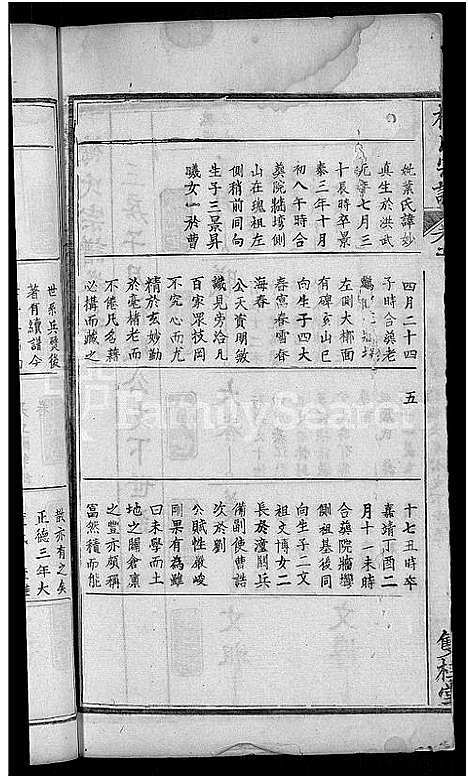 妣葉氏諱妙
真生於洪武
十長時卒景
泰三年十月
初八午時合
葬院牆塆側
山在瑰祖左
側稍前同向
生子三景昇
曦女一於曹
四月二十四
子時合葬老
左側大梆面
有碑寅山巳
向生子四大
春窓春雲春
海春
公天資明敏
識見旁洽凡
百家眾技罔
不究心而尤
精於玄妙勤
於毫楮老而
不倦氏名藉
必搆而藏之
五
十七丑時卒
嘉靖丁酉二
月十一未時
合葬院牆塆
側祖基後同
向生子二文
祖文博女二
長於潼關兵
備副使曹誥
次於劉
公賦性嚴峻
剛果有為雖
曰未學而土
地之闢倉廩
之豐亦頗稱
富然積而能
世系兵燹後
著有續譜今
裝亦有之矣
正德三年大
雙桂堂
FamilySearch